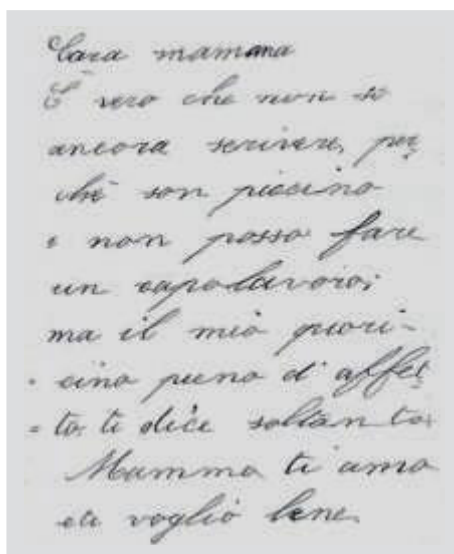 Cara mamma
È vero che non so
ancora scrivere, per
chè son piccino
e non posso fare
un capolavoro;
ma il mio cuori-
cino pieno d'affet
=to: ti dice soltanto:
Mamma ti amo
e ti voglio bene.